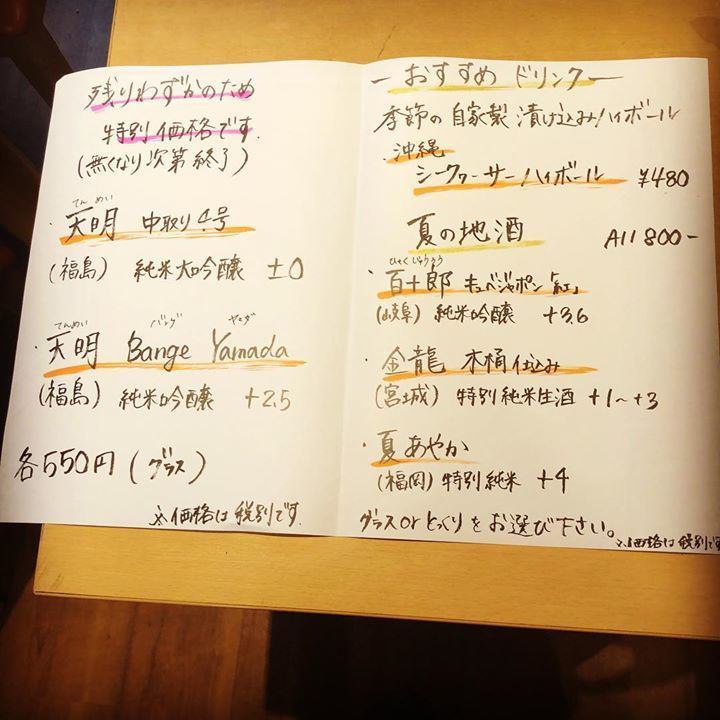 残りわずかのため
特別価格です.
(無くなり次第終了)
てんめい
・天明 中取り4号
(福島) 純米大吟醸 ±0
てんめい バンゲ ヤマダ
・天明 Bange Yamada
(福島) 純米吟醸 +2.5
各550円(グラス)
※価格は税別です.
ーおすすめ ドリンクー
季節の自家製 漬け込みハイボール
・沖縄
シークヮーサーハイボール ¥480
夏の地酒 All 800-
ひゃくじゅうろう
・百十郎 キュベジャポン「紅」
(岐阜) 純米吟醸 +3.6
・金龍 木桶仕込み
(宮城) 特別純米生酒 +1~+3
・夏あやか
(福岡) 特別純米 +4
グラスorとっくりをお選び下さい。
※価格は税別です